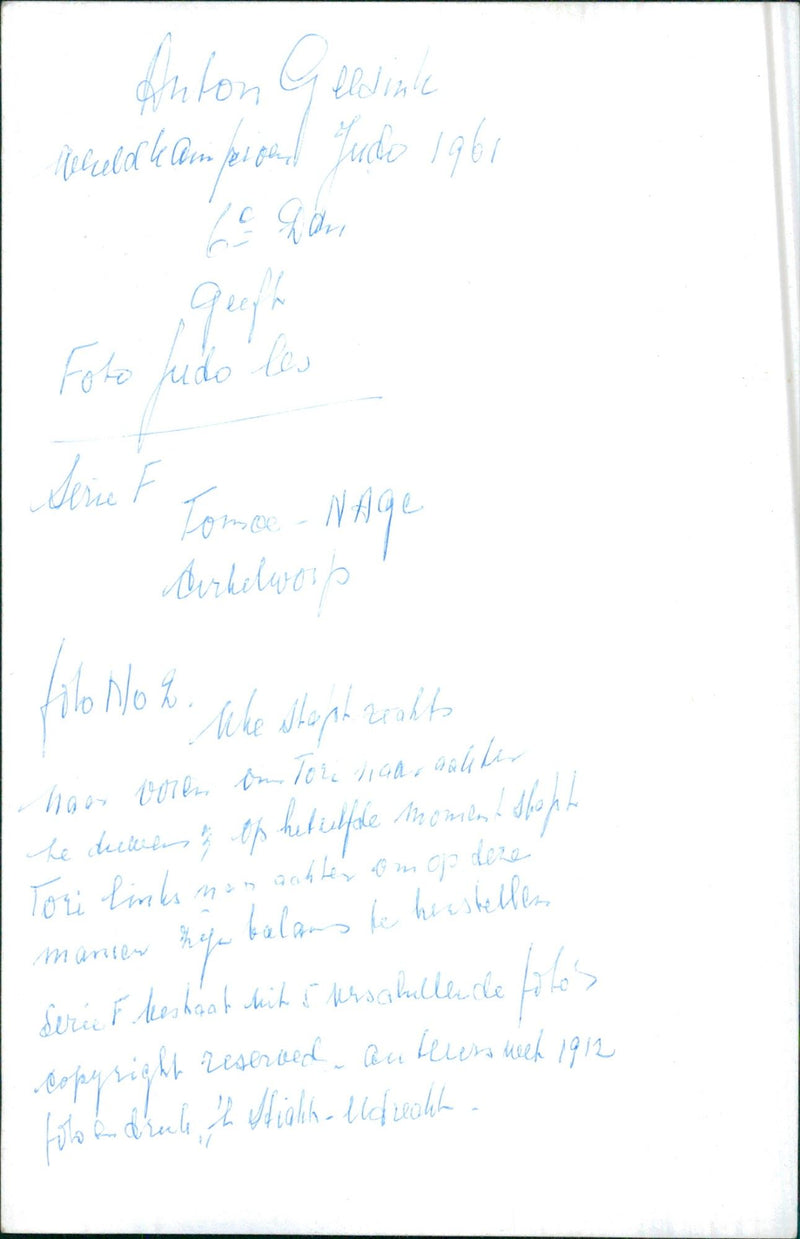 Anton Geesink
wereldkampioen Judo 1961
6e Dan
Geeft
Foto Judo les
Serie F
Tomoe - NAGe
Cirkelworp
foto No 2.
Uke stapt rechts
naar voren om Tori naar achter
te duwen; op hetzelfde moment stapt
Tori links naar achter om op deze
manier zijn balans te herstellen
Serie F bestaat uit 5 verschillende foto's
copyright reserved - auteurswet 1912
foto en druk „'t Sticht - Utrecht -